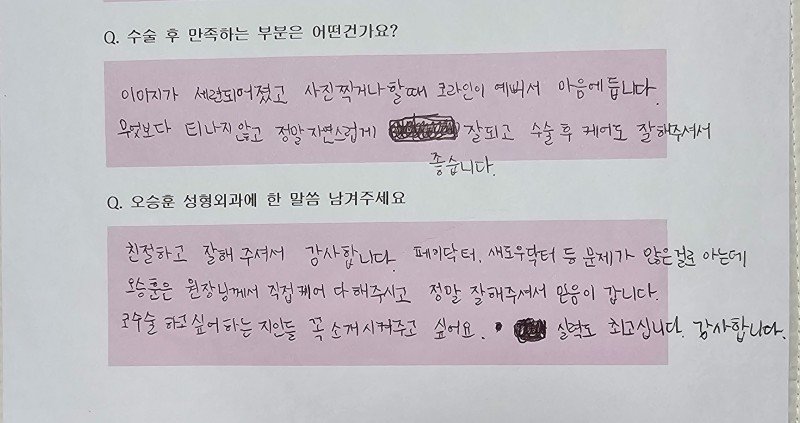 Q. 수술 후 만족하는 부분은 어떤건가요?
이미지가 세련되어졌고 사진찍거나 할때 코라인이 예뻐서 마음에 듭니다.
무엇보다 티나지 않고 정말 자연스럽게 잘되고 수술 후 케어도 잘해주셔서
좋습니다.
Q. 오승훈 성형외과에 한 말씀 남겨주세요
친절하고 잘해 주셔서 감사합니다. 페이닥터, 섀도우닥터 등 문제가 많은걸로 아는데
오승훈은 원장님께서 직접 케어 다 해주시고 정말 잘해주셔서 믿음이 갑니다.
코수술 하고 싶어 하는 지인들 꼭 소개시켜주고 싶어요. 실력도 최고십니다. 감사합니다.